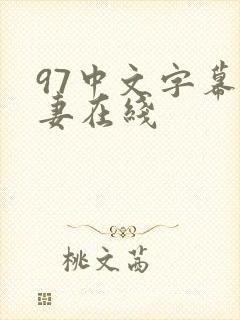 97中文字幕
妻在綫
桃文茜